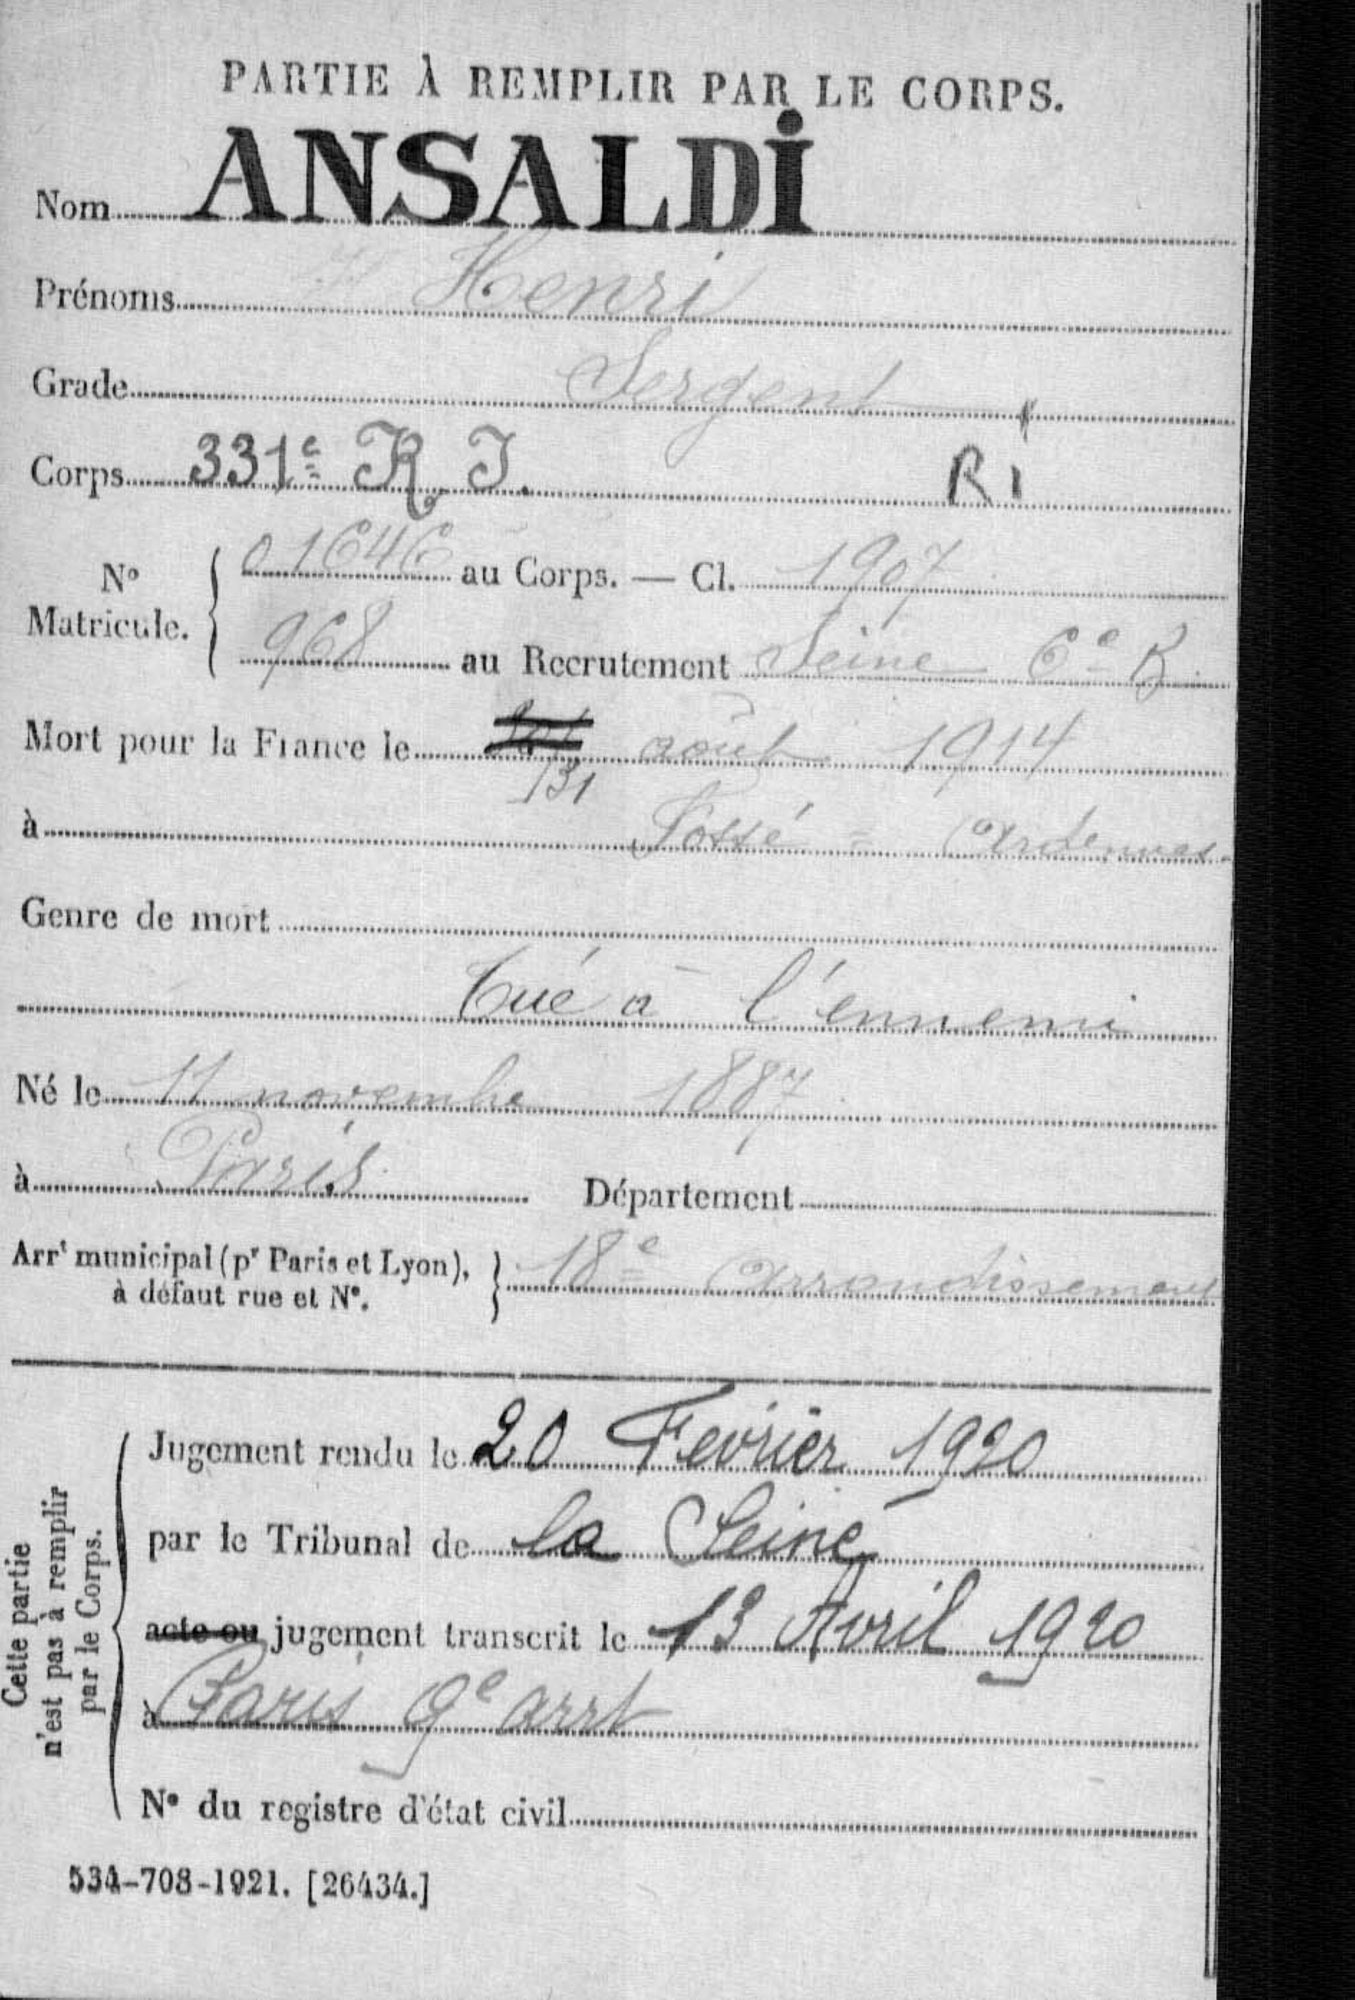 PARTIE À REMPLIR PAR LE CORPS.
Nom ANSALDI
Prénoms Henri
Grade Sergent
Corps 331e R. I. RI
No Matricule. 01646 au Corps. — Cl. 1907
968 au Recrutement Seine 6e B
Mort pour la France le août 1914
31
à Fossé - Ardennes
Genre de mort
Tué à l'ennemi
Né le 11 novembre 1887
à Paris Département
Arrt municipal (pr Paris et Lyon), à défaut rue et No. 18e arrondissement
Cette partie n'est pas à remplir par le Corps.
Jugement rendu le 20 Février 1920
par le Tribunal de la Seine
acte ou jugement transcrit le 13 Avril 1920
à Paris 9e arrt
No du registre d'état civil
534-708-1921. [26434.]